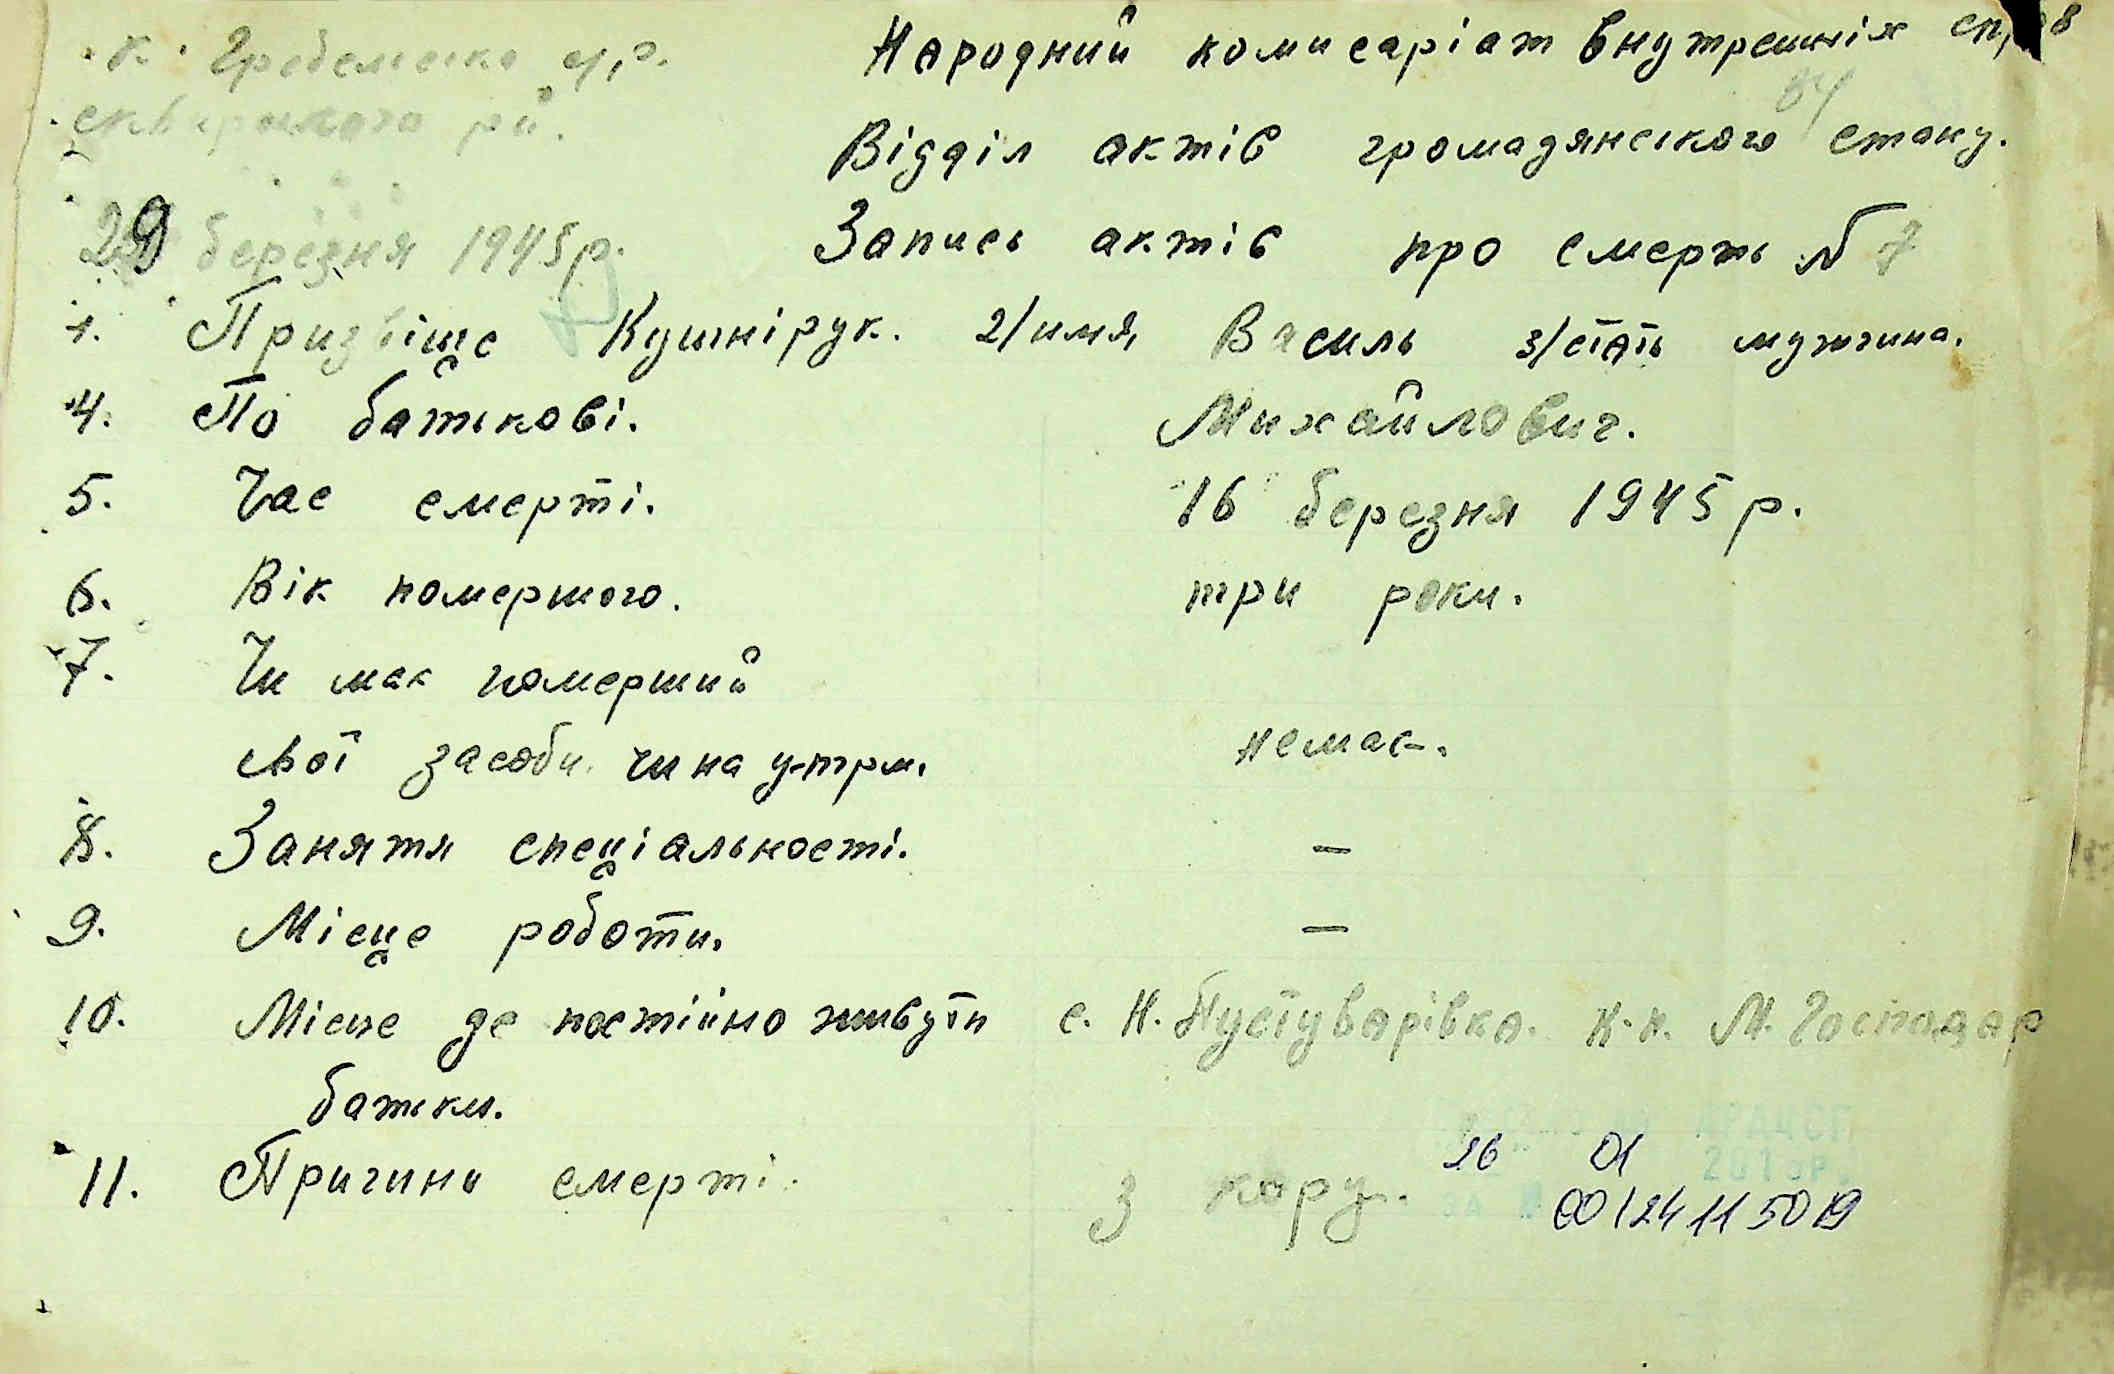 Народний комисаріат внутрешніх справ
сквирського рй.
Відділ актів громадянського стану.
29 березня 1945р. Запись актів про смерть № 7
1. Призвіще Кушнірук. 2/имя Василь 3/стать мужчина.
4. По батькові. Михайлович.
5. Час смерті. 16 березня 1945 р.
6. Вік помершого. три роки.
7. Чи має померший
свої засоби чи на у-трм. немає.
8. Заняття спеціальності. —
9. Місце роботи. —
10. Місце де постійно живуть с. Н. Пустуварівка. К-п. М. Господар
батьки.
11. Причини смерті. З кору.
26 01
00124115019